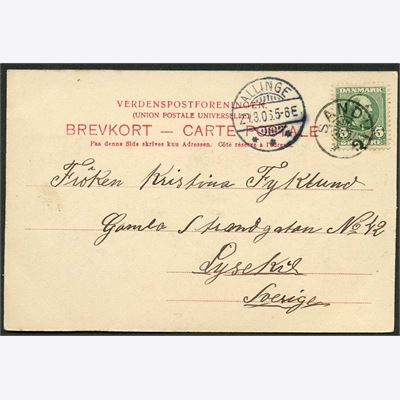 VERDENSPOSTFORENINGEN.
(UNION POSTALE UNIVERSELLE)
BREVKORT — CARTE POSTALE
Paa denne Side skrives kun Adressen. Côté réservé à l'adresse.
ALLINGE
DANMARK
SANDV
5
5
Fröken Kristina Fyklund
Gamla Strandgatan No 12
Lysekil
Sverige